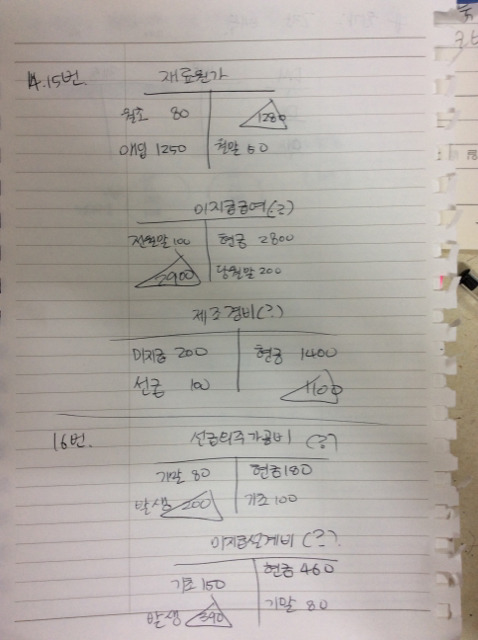 14.15번. 재료원가
월초 80 1280
매입 1250 월말 50
미지급급여(?)
전월말 100 현금 2800
2900 당월말 200
제조경비(?)
미지급 200 현금 1400
선급 100 1100
16번. 선급외주가공비 (?)
기말 80 현금 180
발생 200 기초 100
미지급설계비 (?)
현금 460
기초 150
기말 80
발생 390